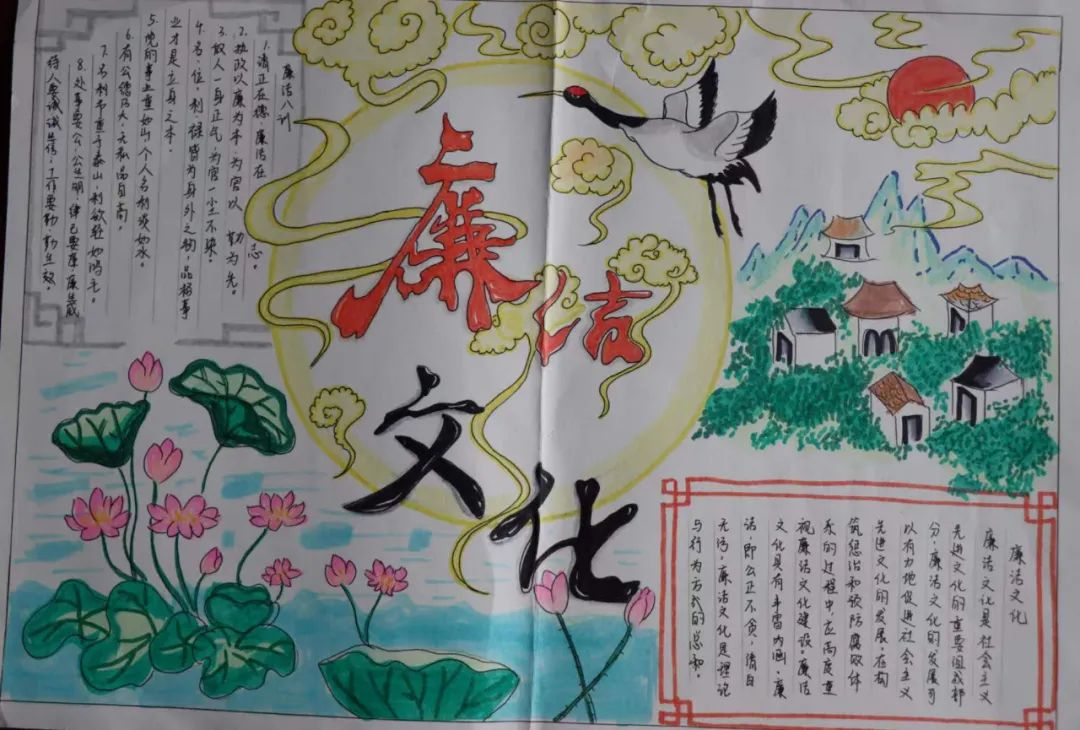 廉洁文化
廉洁八训
1.清正在德,廉洁在志。
2.执政以廉为本,为官以勤为先。
3.做人一身正气,为官一尘不染。
4.名、位、利、禄皆为身外之物,品格事
业才是立身之本。
5.党的事业重如山,个人名利淡如水。
6.有公德乃大,无私品自高。
7.名利节重于泰山,利欲轻如鸿毛。
8.处事要公,公生明,律己要廉,廉生威
待人要诚,诚生信,工作要勤,勤生效。
廉洁文化
廉洁文化是社会主义
先进文化的重要组成部
分,廉洁文化的发展可
以有力地促进社会主义
先进文化的发展,在构
筑惩治和预防腐败体
系的过程中,应高度重
视廉洁文化建设。廉洁
文化具有丰富内涵,廉
洁,即公正不贪,清白
无污,廉洁文化是理论
与行为方式的总和。